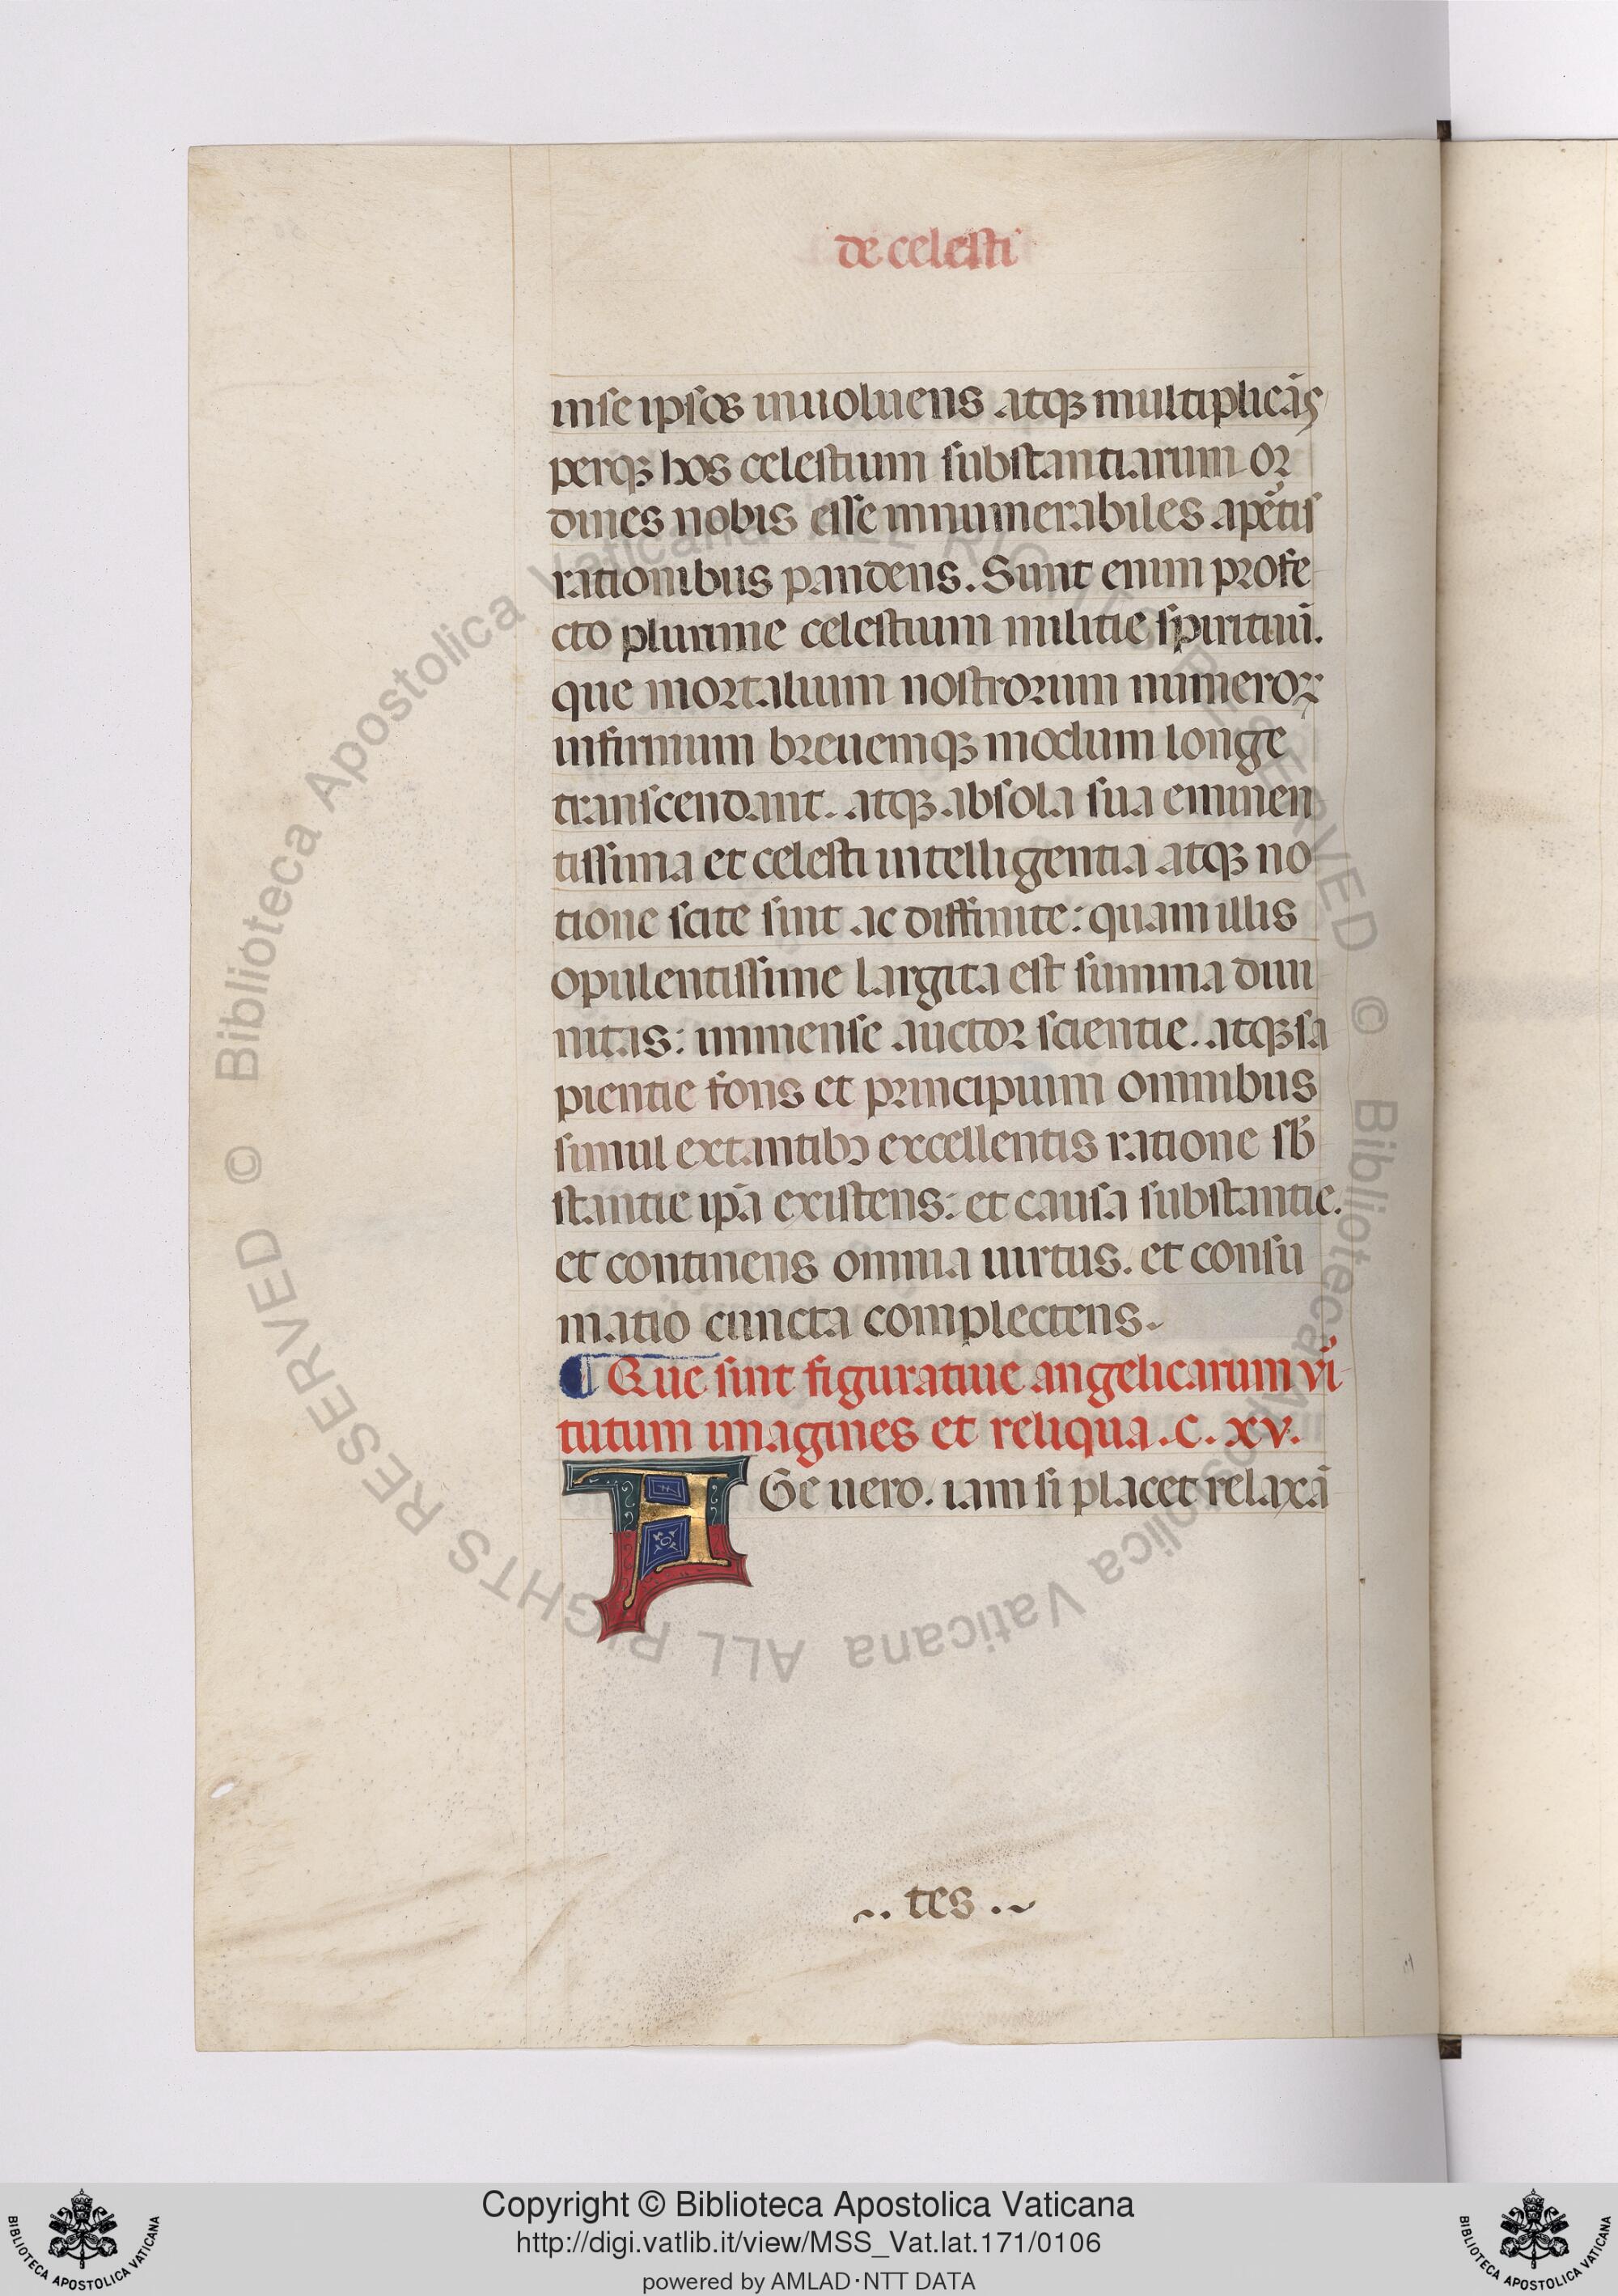 de celesti
inse ipsos inuoluens atqꝫ multiplicās
perqꝫ hos celestium substantiarum or
dines nobis esse innumerabiles apertis
rationibus pandens. Sunt enim profe
cto plurime celestium militie spirituū.
que mortalium nostrorum numeroꝝ
infirmum breuemqꝫ modum longe
transcendant. atqꝫ absola sua eminen
tissima et celesti intelligentia atqꝫ no
tione scite sint ac diffinite: quam illis
opulentissime largita est summa diui
nitas: immense auctor scientie. atqꝫ sa
pientie fons et principium omnibus
simul extantibꝰ excellentis ratione sb̄
stantie ip̄a existens: et causa substantie.
et continens omnia uirtus. et consu
matio cuncta complectens.
¶ Que sint figuratiue angelicarum vi
tutum imagines et reliqua. c. xv.
AGe uero. iam si placet relaxā
tes
Biblioteca Apostolica Vaticana ALL RIGHTS RESERVED ©
Copyright © Biblioteca Apostolica Vaticana
http://digi.vatlib.it/view/MSS_Vat.lat.171/0106
powered by AMLAD·NTT DATA
BIBLIOTECA APOSTOLICA VATICANA
BIBLIOTECA APOSTOLICA VATICANA